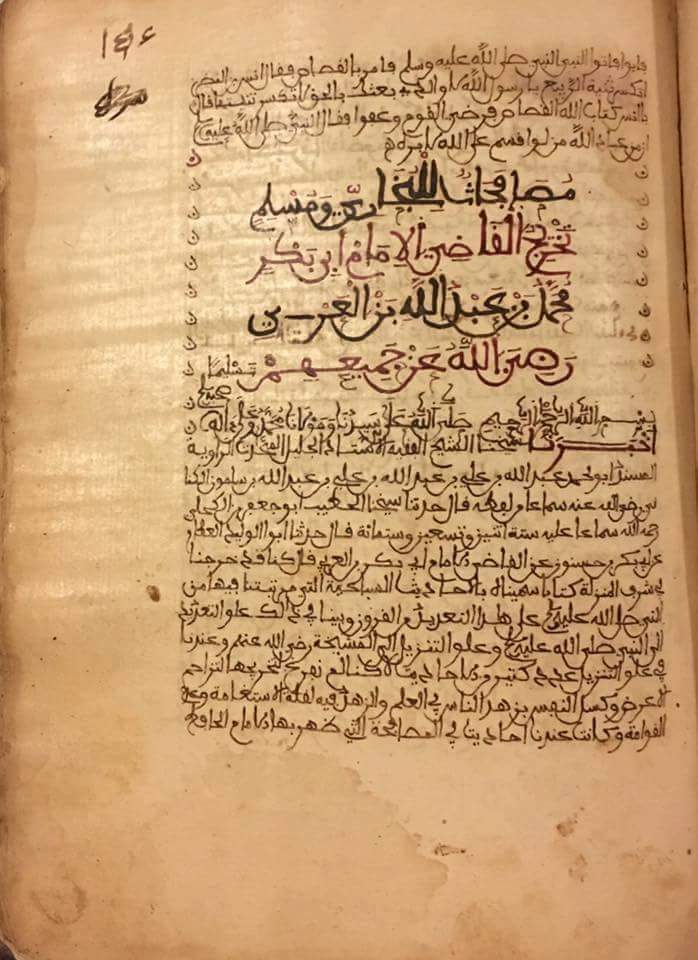 ١٤٦
فابوا فاتوا النبي النبي صلى الله عليه وسلم فامر بالقصاص فقال انس بن النضر
اتكسر ثنية الربيع يا رسول الله لا والذي بعثك بالحق لا تكسر ثنيتها فقال
يا انس كتاب الله القصاص فرضي القوم وعفوا فقال النبي صلى الله عليه
ان من عباد الله من لو اقسم على الله لابره
مصافحات البخاري ومسلم
تخريج القاضي الامام ابي بكر
محمد بن عبد الله بن العربي
رضي الله عن جميعهم تسليما
بسم الله الرحمن الرحيم صلى الله على سيدنا ومولانا محمد وعلى اله
اخبرنا شيخنا الشيخ الفقيه الاستاذ الجليل الراوية
المسند ابو محمد عبد الله بن علي بن عبد الله بن علي بن عبد الله بن
رضي الله عنه سماعا من لفظه قال حدثنا شيخنا الخطيب ابو جعفر بن الكحيلي
رحمه الله سماعا عليه سنة اثنين وتسعين وستمائة قال حدثنا ابو الوليد العطار
عن ابي بكر بن حسنون عن القاضي الامام ابي بكر بن العربي قال كنا قد خرجنا
في شرف المنزلة كتابا سميناه بالاحاديث السباعية التي مرتبتنا فيها من
النبي صلى الله عليه على هذا التعديل وبينا في ذلك علو التعريج
الى النبي صلى الله عليه وعلو التنزيل الى المشيخة رضي الله عنهم وعندنا
في علو التنزيل عدد كثير من الاحاديث لاكنا لم نفرغ لتخريجها لتزاحم
الاعراض وكسل النفس بزهد الناس في العلم والزهد فيه لقلة الاستقامة وعدم
القوامة وكانت عندنا احاديث في المصافحة التي ظهر بها الامام الحافظ